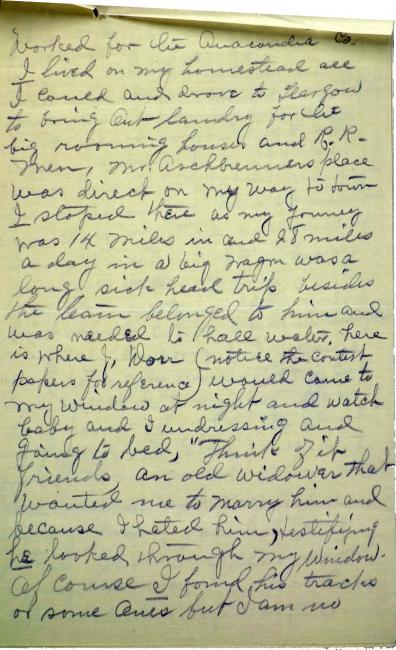 Worked for the Anaconda Co.
I lived on my homestead all
I could and drove to Glasgow
to bring out landry for the
big rooming houses and R. R.
men, Mr. Aschbrenners place
was direct on my way to town
I stoped there as my journey
was 14 miles in and 28 miles
a day in a big wagon was a
long sick head trip besides
the team belonged to him and
was needed to hall water, here
is where J. Worr (notice the contest
papers for reference) would come to
my window at night and watch
baby and I undressing and
going to bed, "Think of it
friends, an old widower that
wanted me to marry him and
because I hated him, testifying
he looked through my window.
Of course I fond his tracks
or some ones but I am no